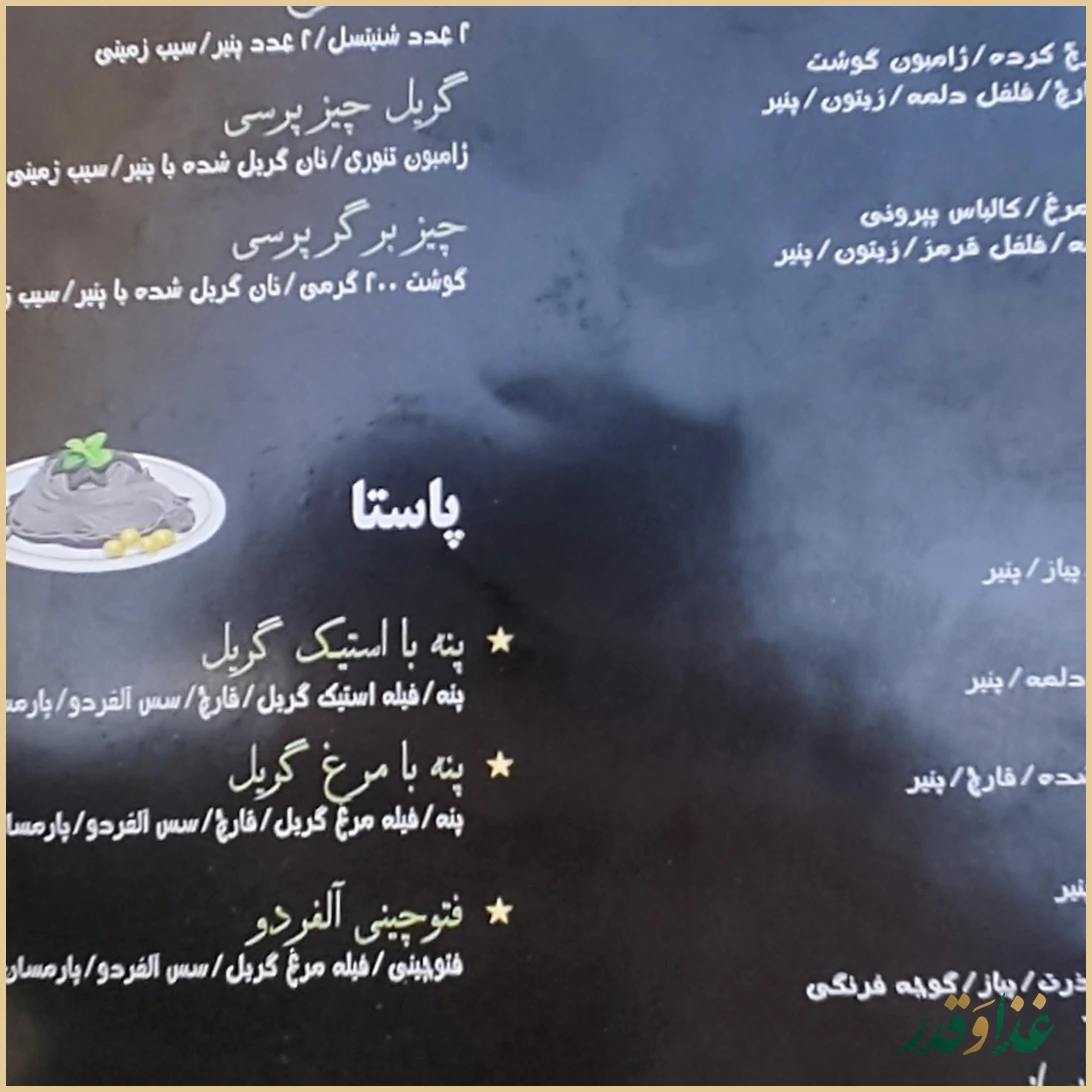 کرده/ژامبون گوشت
قارچ/فلفل دلمه/زیتون/پنیر
مرغ/کالباس پپرونی
فلفل قرمز/زیتون/پنیر
پیاز/پنیر
دلمه/پنیر
شده/قارچ/پنیر
پنیر
ذرت/پیاز/گوجه فرنگی
۲ عدد شنیتسل/۲ عدد پنیر/سیب زمینی
گریل چیز پرسی
ژامبون تنوری/نان گریل شده با پنیر/سیب زمینی
چیز برگر پرسی
گوشت ۲۰۰ گرمی/نان گریل شده با پنیر/سیب
پاستا
پنه با استیک گریل
پنه/فیله استیک گریل/قارچ/سس آلفردو/
پنه با مرغ گریل
پنه/فیله مرغ گریل/قارچ/سس آلفردو/
فتوچینی آلفردو
فتوچینی/فیله مرغ گریل/سس آلفردو/پارمسان
غذا و قدر